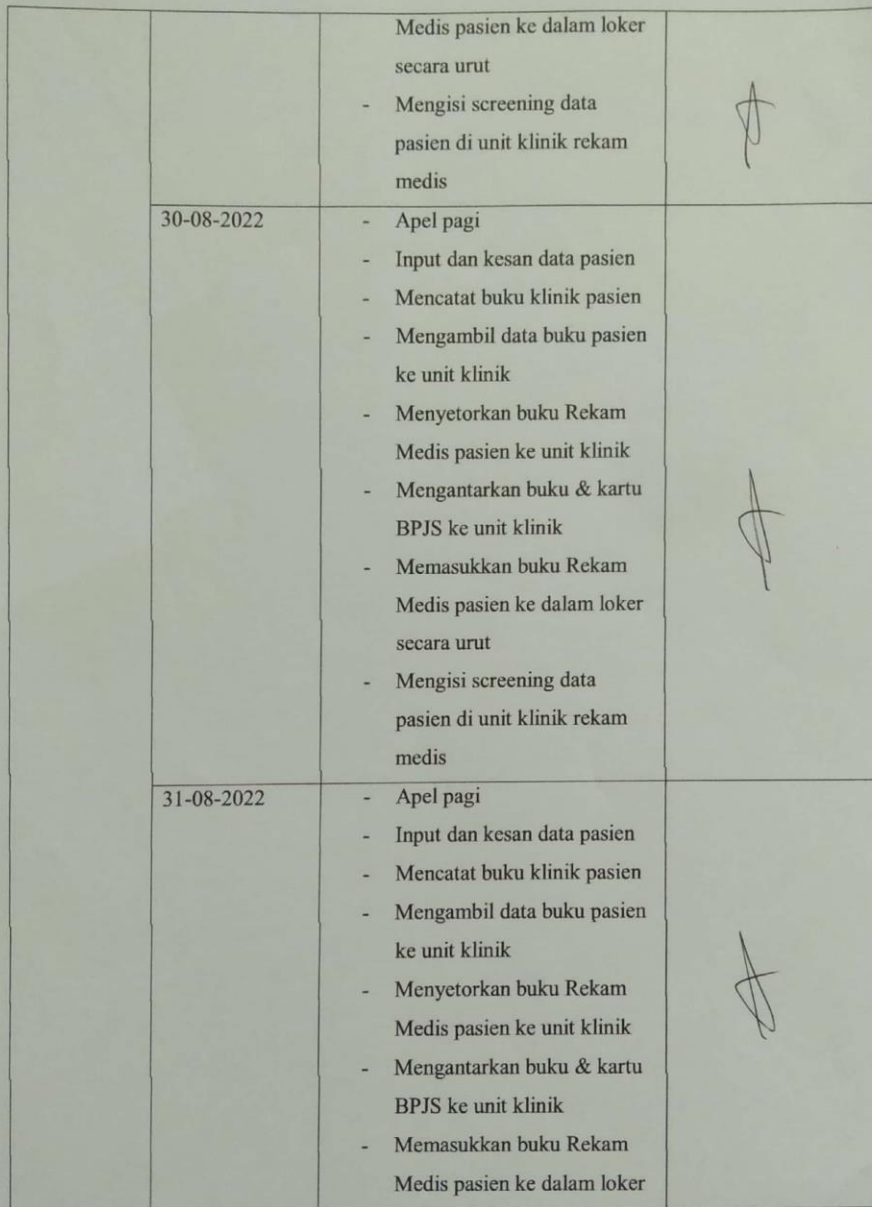 Medis pasien ke dalam loker
secara urut
- Mengisi screening data
pasien di unit klinik rekam
medis
30-08-2022
- Apel pagi
- Input dan kesan data pasien
- Mencatat buku klinik pasien
- Mengambil data buku pasien
ke unit klinik
- Menyetorkan buku Rekam
Medis pasien ke unit klinik
- Mengantarkan buku & kartu
BPJS ke unit klinik
- Memasukkan buku Rekam
Medis pasien ke dalam loker
secara urut
- Mengisi screening data
pasien di unit klinik rekam
medis
31-08-2022
- Apel pagi
- Input dan kesan data pasien
- Mencatat buku klinik pasien
- Mengambil data buku pasien
ke unit klinik
- Menyetorkan buku Rekam
Medis pasien ke unit klinik
- Mengantarkan buku & kartu
BPJS ke unit klinik
- Memasukkan buku Rekam
Medis pasien ke dalam loker